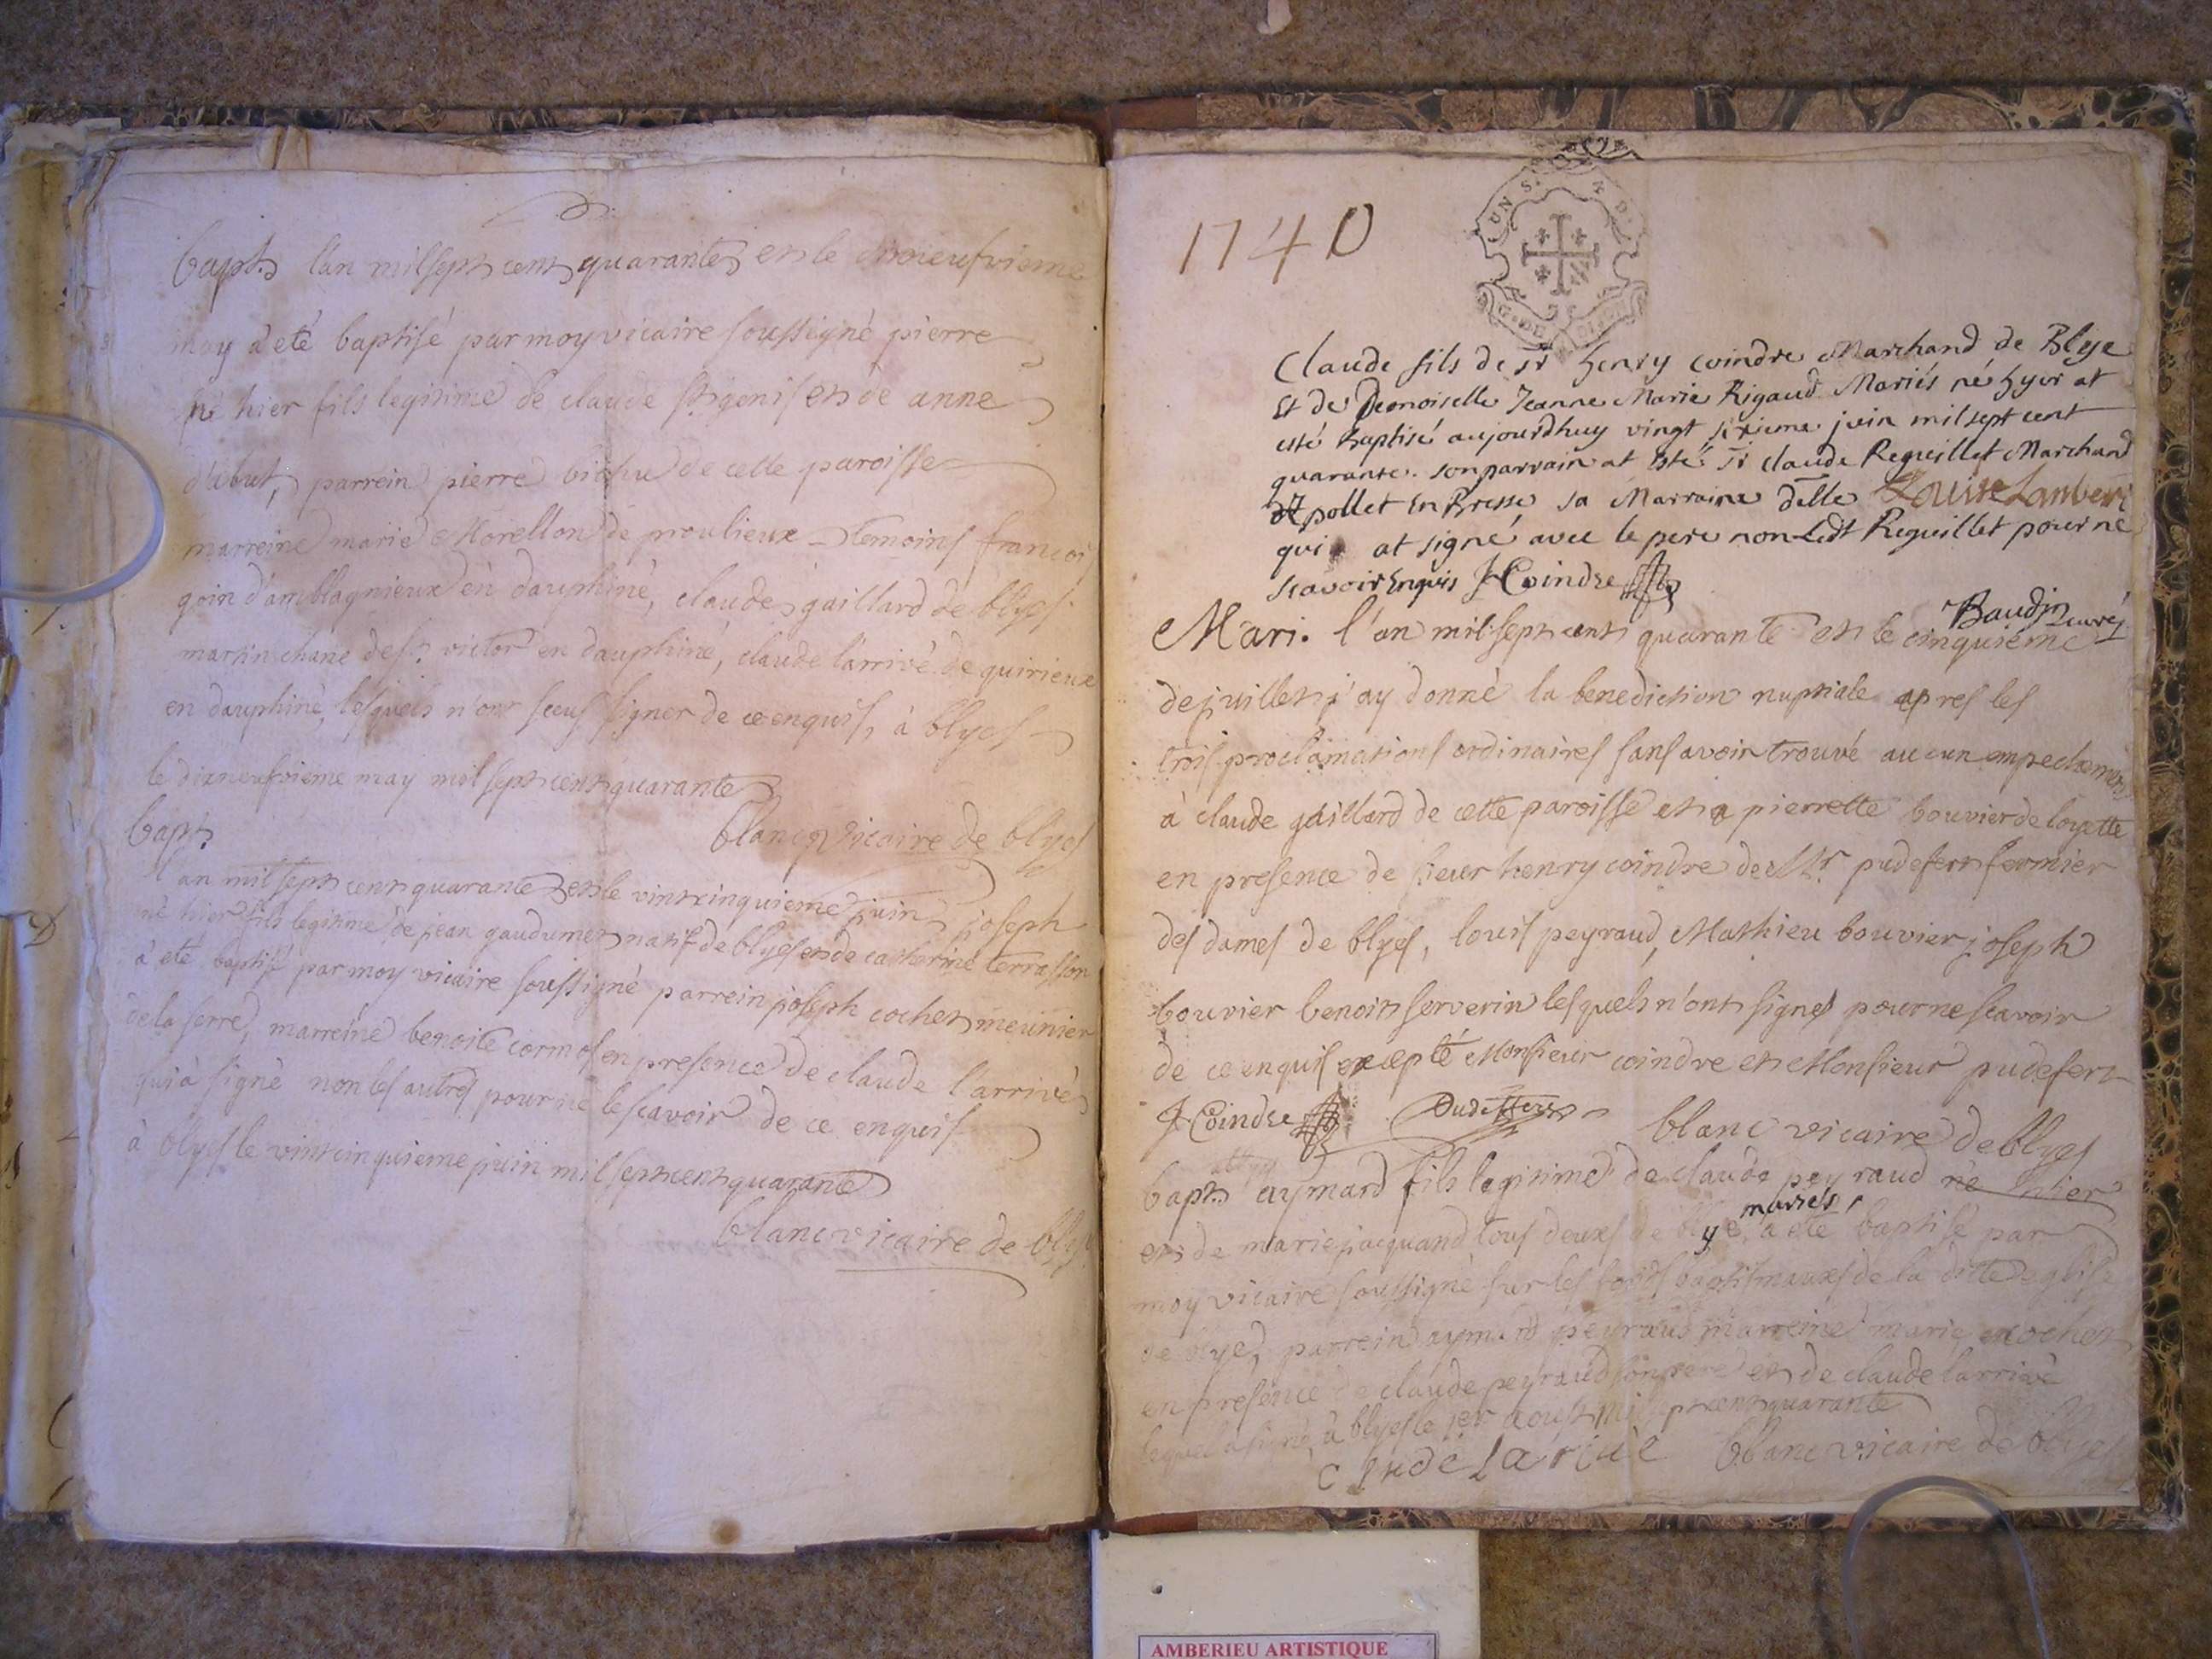 bapt. l'an mil sept cent quarante et le dixneufvieme
may à eté baptisé par moy vicaire soussigné pierre
né hier fils legitime de claude et de anne
parrein pierre de cette paroisse
marreine marie Morellon de proulieux temoins françois
goin d'amblagnieux en dauphiné, claude gaillard de blyes
martin de st victor en dauphiné, claude larrivé de quirieux
en dauphiné, lesquels n'ont sceus signer de ce enquis, à blyes
le dixneufvieme may mil sept cent quarante
blanc vicaire de blyes
bapt.
l'an mil sept cent quarante et le vintcinquieme juin joseph
né hier fils legitime de jean gaudumet natif de blyes et de catherine terrasson
à eté baptisé par moy vicaire soussigné parrein joseph cochet meunier
de la serre, marreine benoite cormos en presence de claude l'arrivé
qui à signé non les autres pour ne le scavoir de ce enquis
à blyes le vintcinquieme juin mil sept cent quarante
blanc vicaire de blyes
1740
UN S. N D.
G. DE DIJON
Claude fils de sr henry coindre Marchand de Blye
Et de Demoiselle Jeanne Marie Rigaud Mariés né hyer at
esté Baptisé aujourdhuy vingt sixieme juin mil sept cent
quarante. son parrain at Esté sr claude Regueillet Marchand
pollet En Bresse sa Marraine delle Louise Lanberi
qui at signé avec le pere non Ledt Regueillet pour ne
scavoir Enquis J Coindre
Baudin curé
Mari. l'an mil sept cent quarante et le cinquième
de juillet j'ay donné la benediction nuptiale apres les
trois proclamations ordinaires sans avoir trouvé aucun empechement
à claude gaillard de cette paroisse et a pierrette bouvier de loyette
en presence de sieur henry coindre de Mr. pudefert fermier
des dames de blyes, louis peyraud, Mathieu bouvier joseph
bouvier benoit serverin lesquels n'ont signes pour ne scavoir
de ce enquis excepté Monsieur coindre et Monsieur pudefert
J Coindre Pudeffert blanc vicaire de blyes
bapt. aymard fils legitime de claude peyraud né hier
mariés
et de marie jacquand tous deux de blye, à eté baptisé par
moy vicaire soussigné sur les fonds baptismaux de la ditte eglise
de blye, parrein aymard peyraud marreine marie cochet
en presence de claude peyraud son pere et de claude larrivé
lequel a signé, à blyes le 1er aoust mil sept cent quarante
blanc vicaire de blyes
AMBERIEU ARTISTIQUE